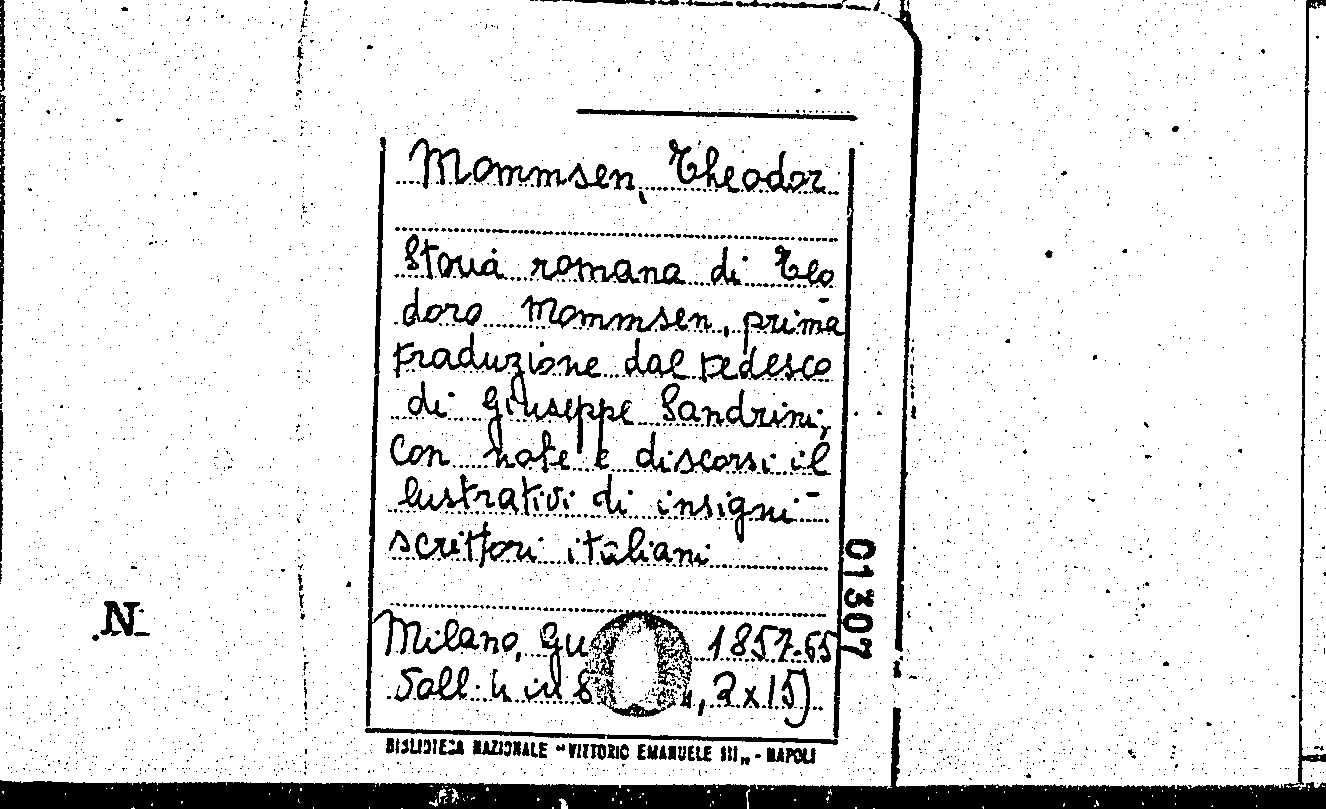 Mommsen, Theodor
Storia romana di Teo
doro Mommsen, prima
traduzione dal tedesco
di Giuseppe Sandrini,
con note e discorsi il
lustrativi di insigni
scrittori italiani
01307
N.
Milano, Gu 1857-65
in 8 , 2x15)
BIBLIOTECA NAZIONALE "VITTORIO EMANUELE III„ - NAPOLI